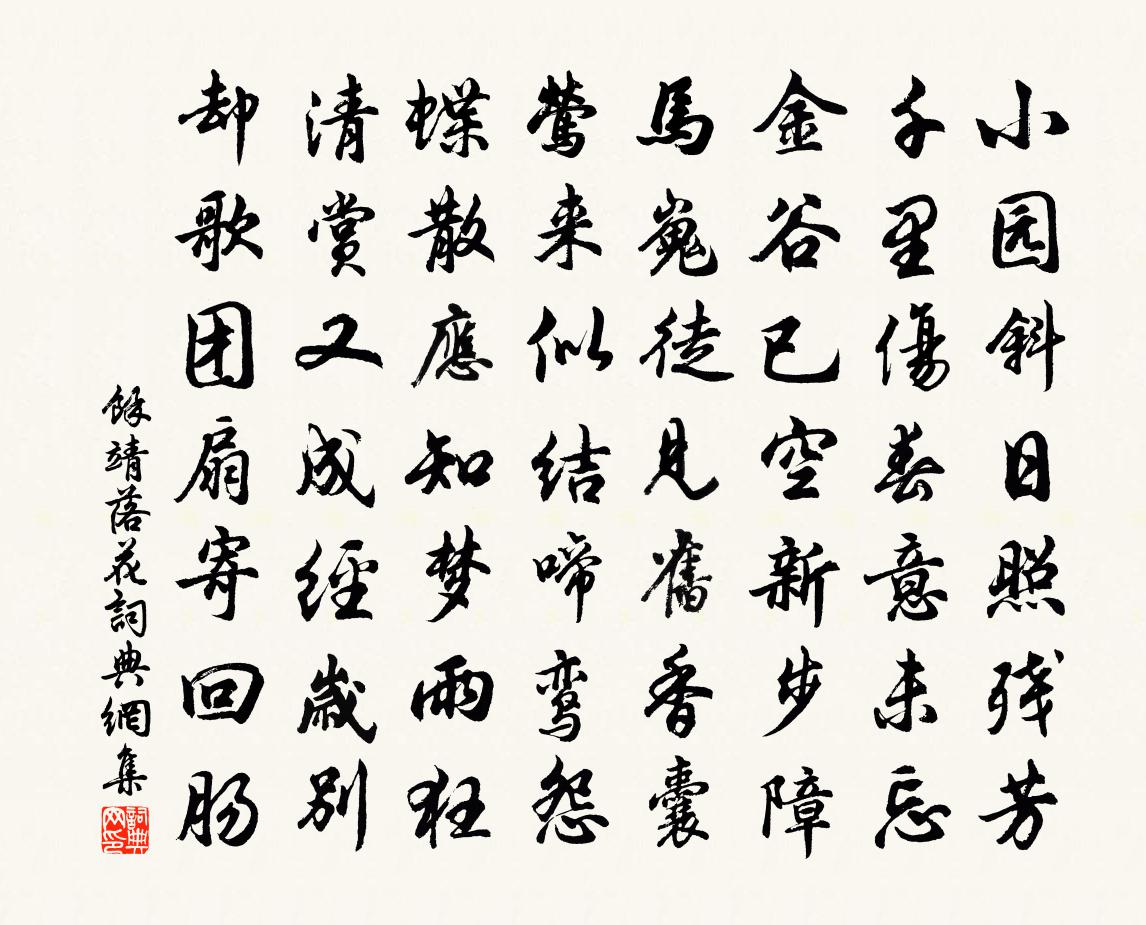 小园斜日照残芳
千里傷春意未忘
金谷已空新步障
馬嵬徒見舊香囊
鶯来似结啼鸾怨
蝶散應知梦雨狂
清赏又成經歲别
却歌团扇寄回肠
餘靖落花詞典網集
詞典网印